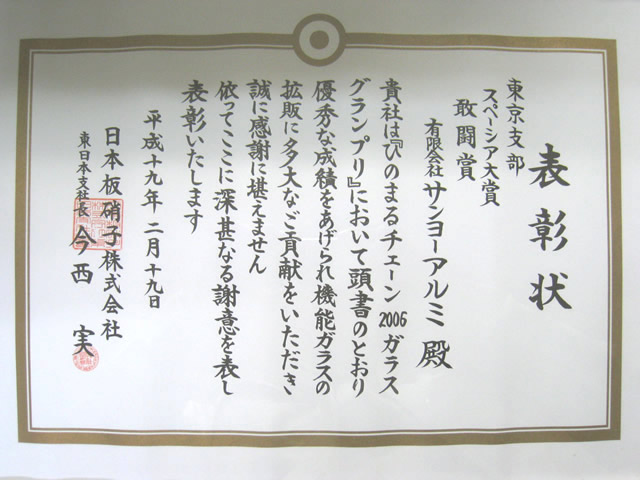 表彰状
東京支部
スペーシア大賞
敢闘賞
有限会社 サンヨーアルミ 殿
貴社は『ひのまるチェーン2006ガラス
グランプリ』において頭書のとおり
優秀な成績をあげられ機能ガラスの
拡販に多大なご貢献をいただき
誠に感謝に堪えません
依ってここに深甚なる謝意を表し
表彰いたします
平成十九年二月十九日
日本板硝子株式会社
東日本支社長 今西 実